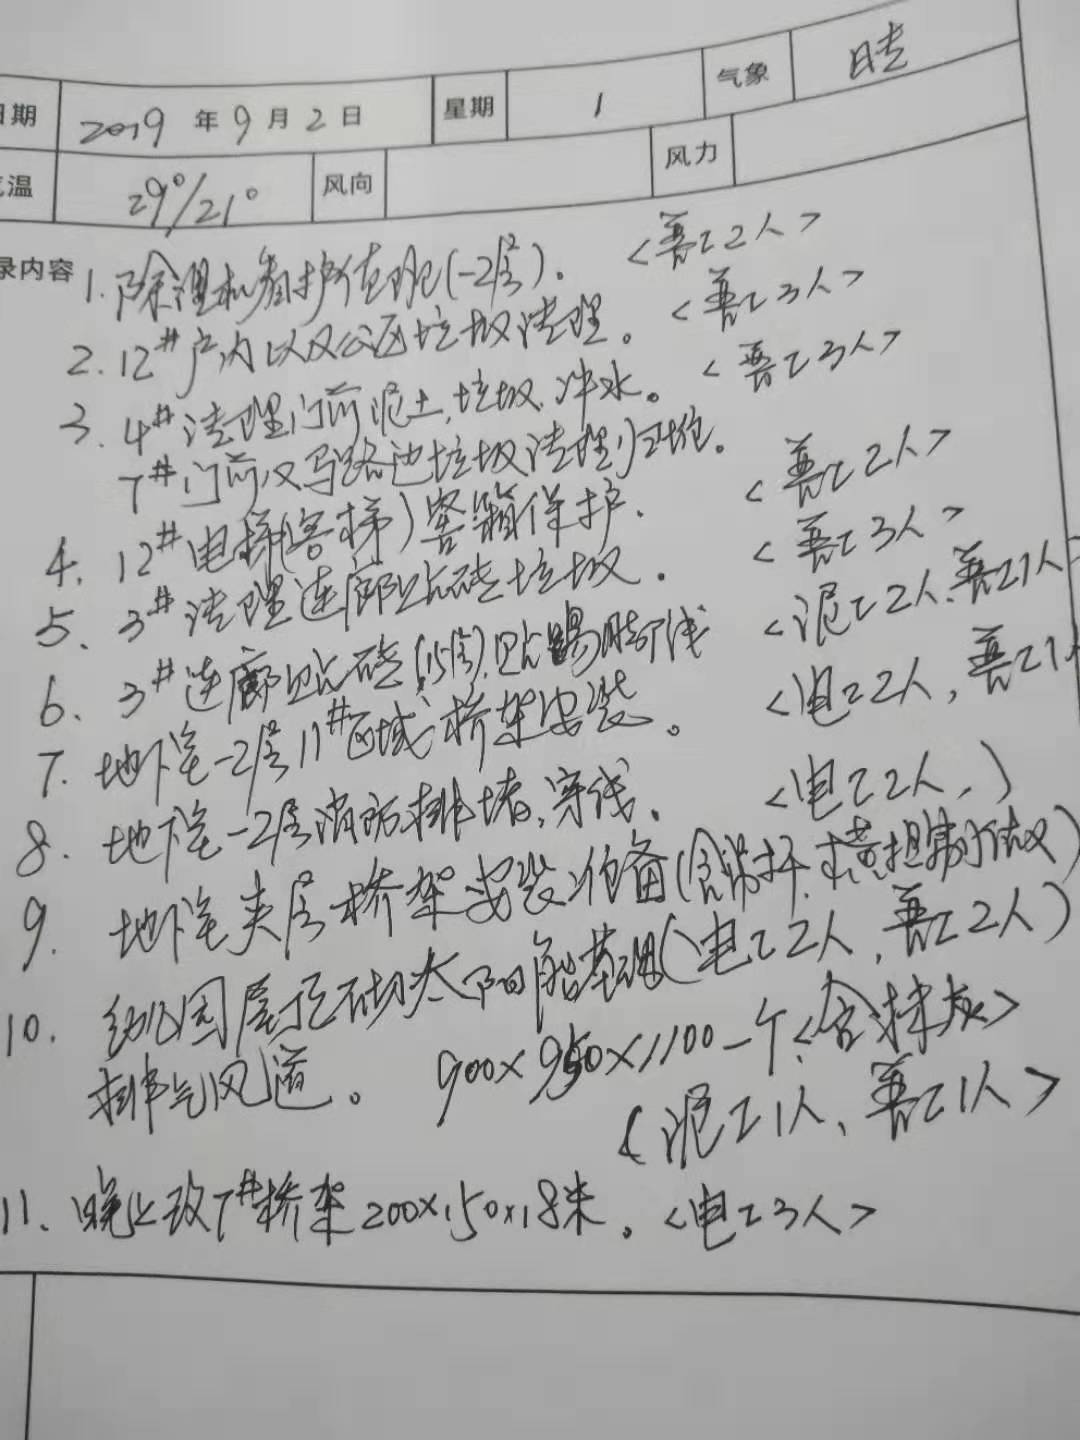 日期 2019 年 9 月 2 日 星期 1 气象 晴
气温 29°/21° 风向 风力
录内容 1. 除湿机看护值班(-2层). <普工2人>
2. 12#户内以及公区垃圾清理。 <普工3人>
3. 4#清理门前泥土,垃圾,冲水。 <普工3人>
7#门前及马路边垃圾清理归堆。
4. 12#电梯(客梯)客箱保护. <普工2人>
5. 3#清理连廊贴砖垃圾. <普工3人>
6. 3#连廊贴砖(15层),贴踢脚线 <泥工2人,普工1人>
7. 地下室-2层11#区域桥架安装。 <电工2人,普工1人
8. 地下室-2层消防排堵,穿线. <电工2人,)
9. 地下室夹层桥架安装准备(含吊杆,横担制作)
10. 幼儿园屋顶砌太阳能基础(电工2人,普工2人)
排气风道。 900×950×1100一个<含抹灰>
<泥工1人、普工1人>
11. 晚上改7#桥架200×150×18米。<电工3人>